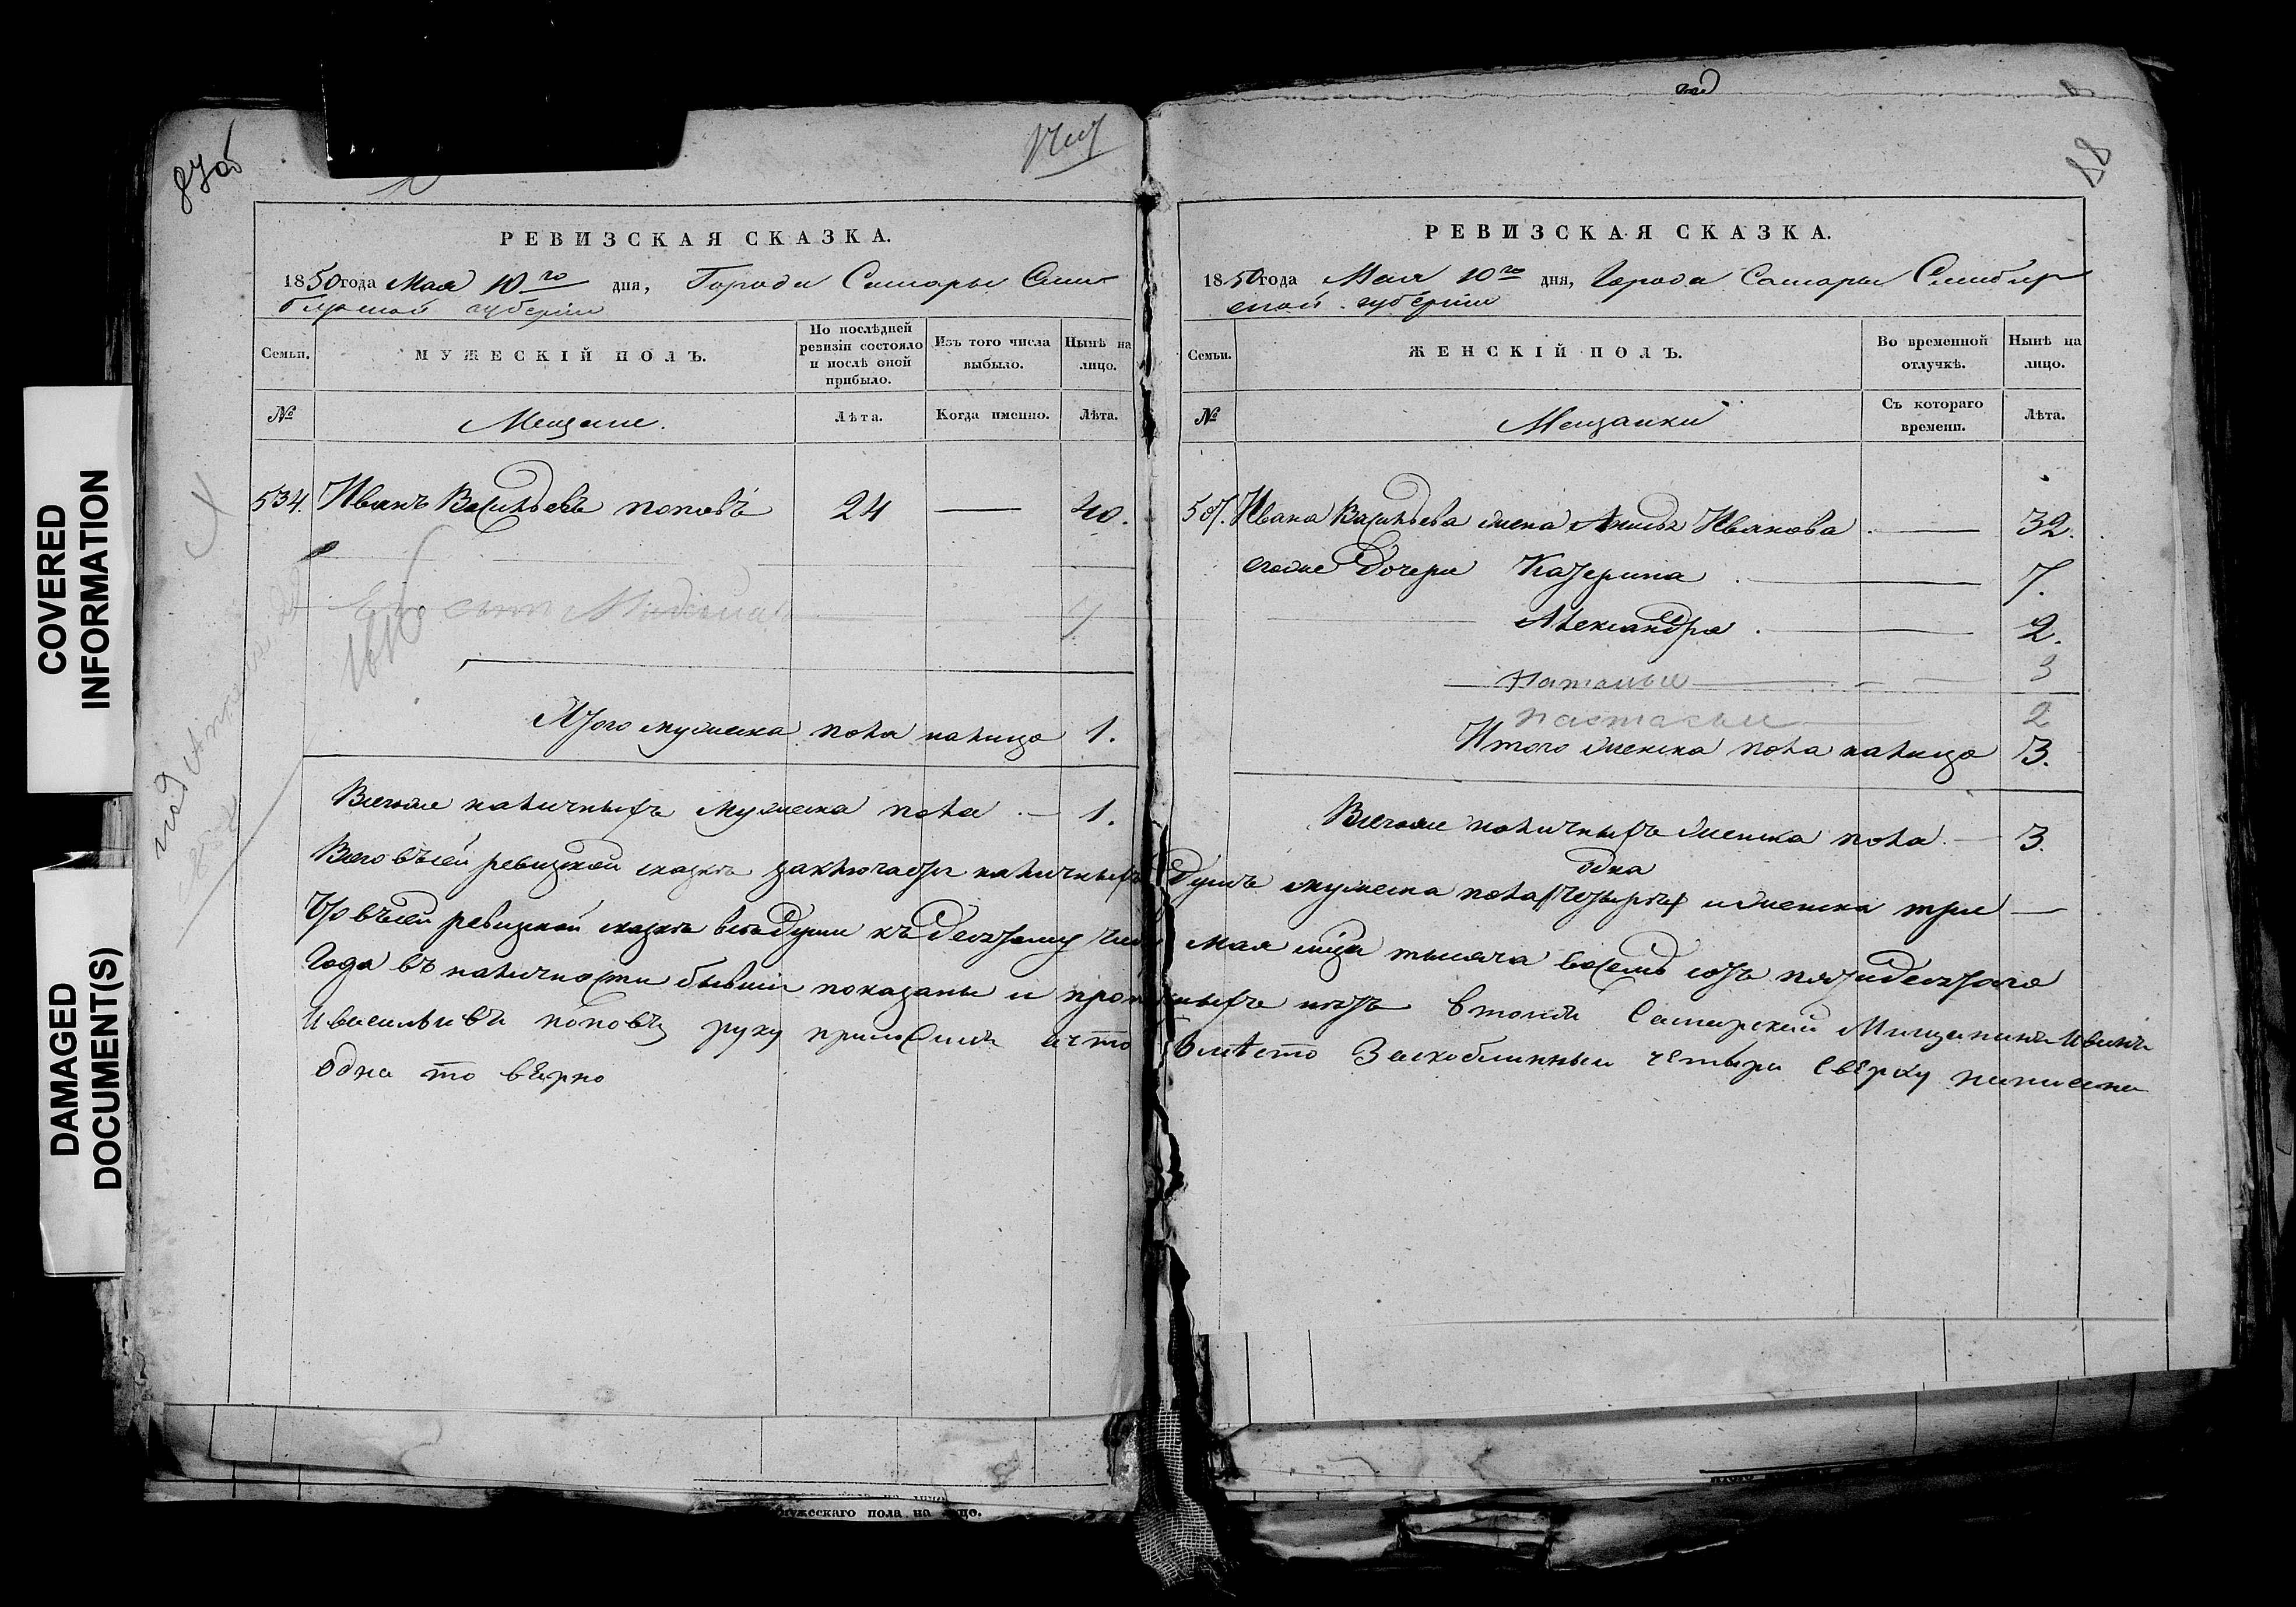 COVERED
INFORMATION
DAMAGED
DOCUMENT(S)
87об
РЕВИЗСКАЯ СКАЗКА.
1850 года Мая 10го дня, Города Самары Сим-
бирской губернии
Семьи.
МУЖЕСКІЙ ПОЛЪ.
По послѣдней ревизіи состояло и послѣ оной прибыло.
Изъ того числа выбыло.
Нынѣ на лицо.
№
Мещане.
Лѣта.
Когда именно.
Лѣта.
534. Иванъ Васильевъ поповъ 24 — 40.
Его сынъ
Итого мужеска пола налицо 1.
Всего же наличныхъ мужеска пола — 1.
88
РЕВИЗСКАЯ СКАЗКА.
1850 года Мая 10го дня, Города Самары Симбир
ской губернии
Семьи.
ЖЕНСКІЙ ПОЛЪ.
Во временной отлучкѣ.
Нынѣ на лицо.
№
Мещанки
Съ котораго времени.
Лѣта.
Ивана Васильева жена Ивакова — 32.
его же дочери Катерина — 7.
Александра — 2.
Наталья — 3
Настасья 2
Итого женска пола налицо 3.
Всего же наличныхъ женска пола — 3.
одна
Всего въ сей ревизской сказкѣ заключается наличныхъ душъ мужеска пола четыре и женска три —
Что въ сей ревизской сказкѣ всѣ души къ десятому чис Мая мца тысяча восемь сотъ пятидесятаго
года въ наличности бывшия показаны и проп ныхъ нѣтъ в томъ Самарский Мищанинъ Иванъ
Ивасильивъ поповъ руку приложилъ а что вместо Заскобленныи четыри сверху написана
одна то верно
ужескаго пола на лицо.